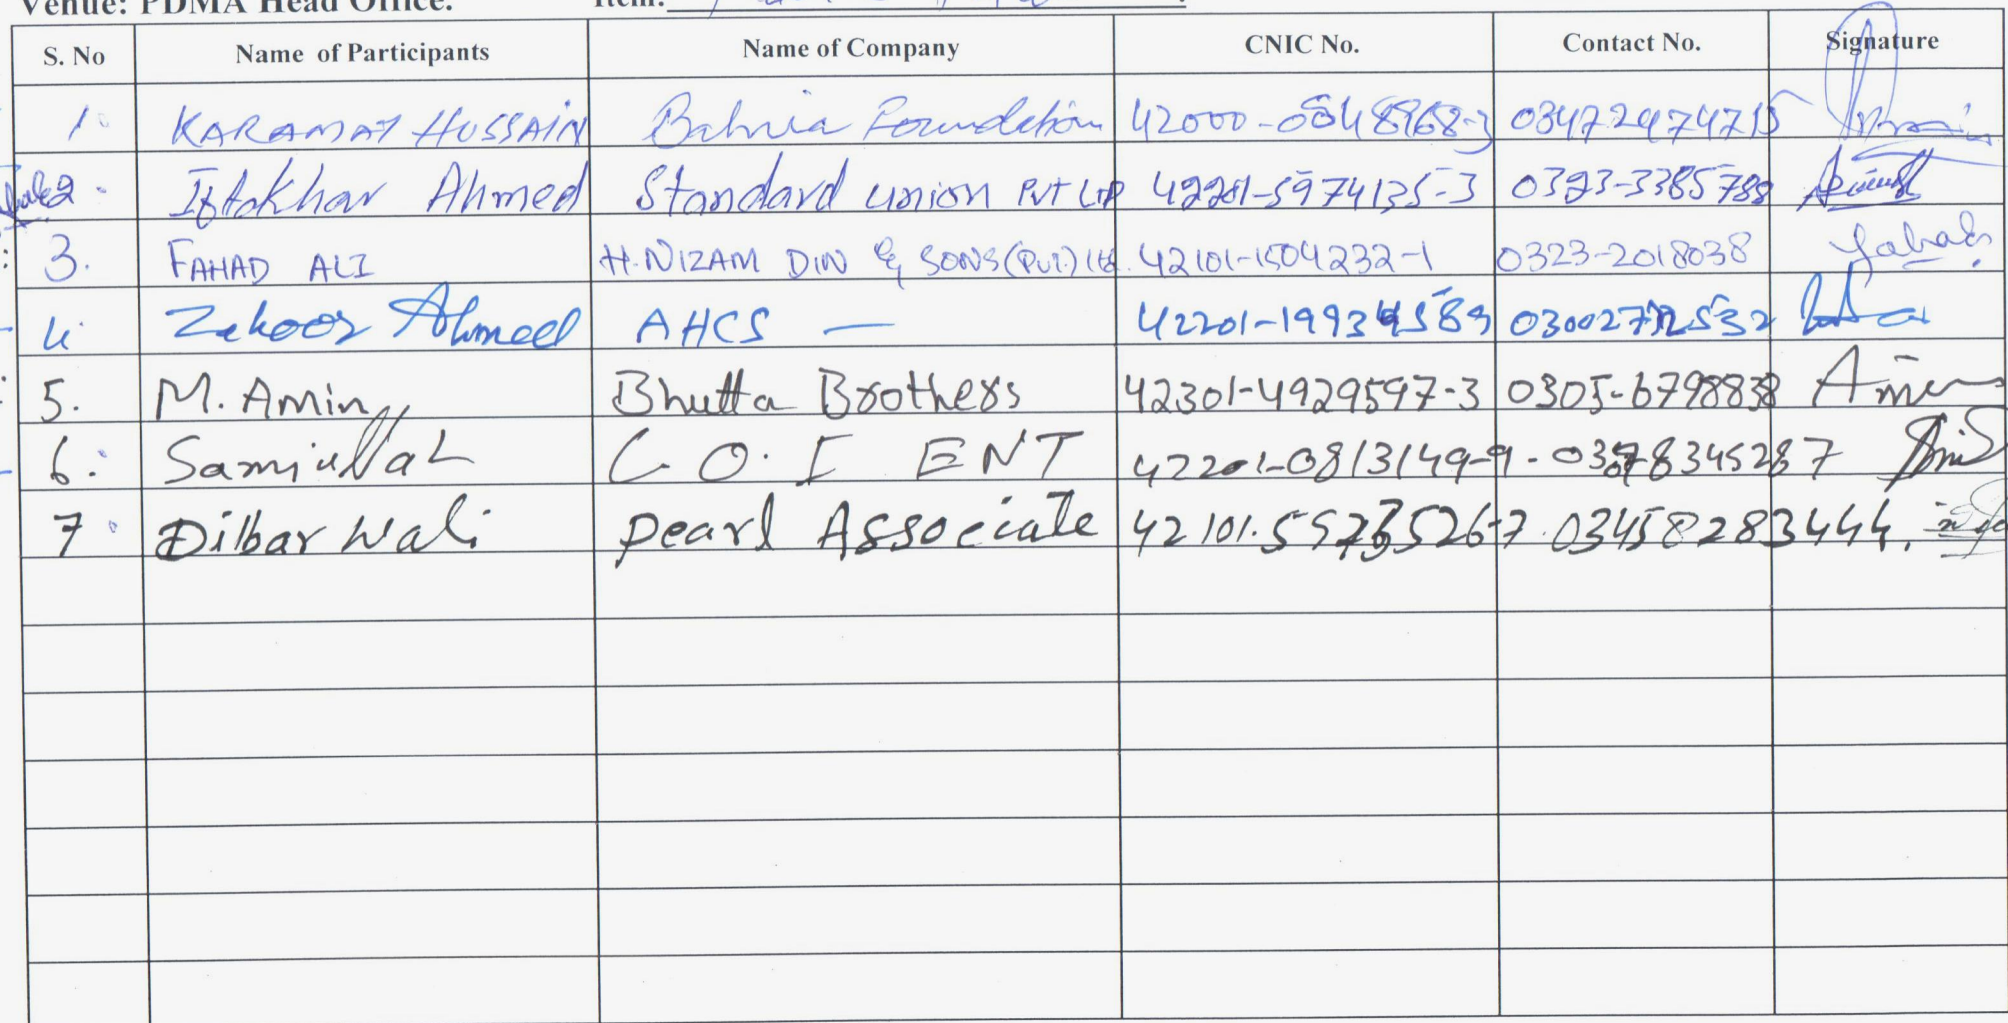 Venue: PDMA Head Office. Item:
S. No Name of Participants Name of Company CNIC No. Contact No. Signature
1. KARAMAT HUSSAIN Bahria Foundation 42000-0548968-3 03472974715
2. Iftakhar Ahmed Standard union PVT LTD 42201-5974135-3 0323-3385788
3. FAHAD ALI H.NIZAM DIN & SONS (Pvt.) Ltd. 42101-1504232-1 0323-2018038 Fahad
4. Zahoor Ahmed AHCS — 42201-19934589
5. M. Amin Bhutta Brothers 42301-4929597-3 0305-6798838 Amin
6. Samiullah C.O.I ENT 42201-0813149-9
7. Dilbar Wali Pearl Associate 03458283444.